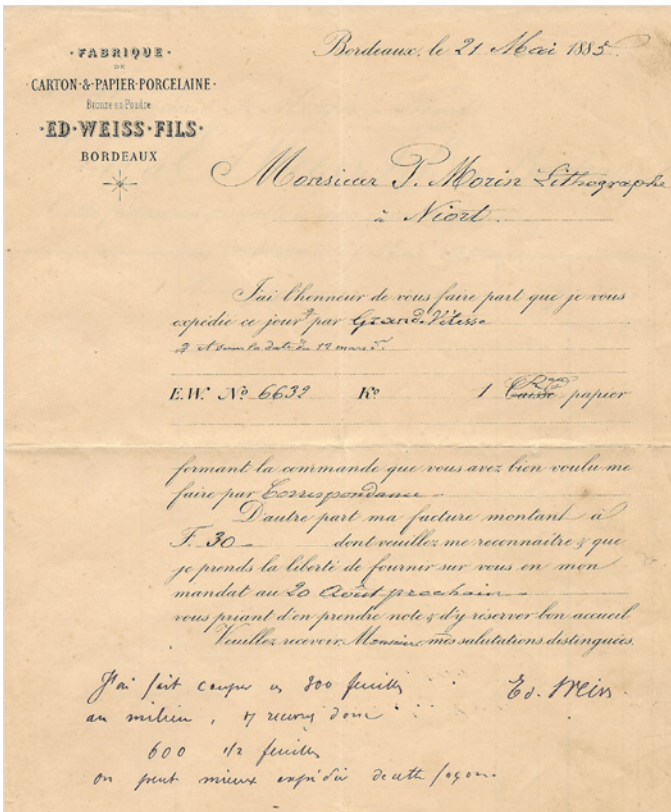 · FABRIQUE ·
DE
· CARTON · & · PAPIER · PORCELAINE ·
Bronze en Poudre
· ED · WEISS · FILS ·
BORDEAUX
Bordeaux, le 21 Mai 1885
Monsieur P. Morin Lithographe
à Niort
J'ai l'honneur de vous faire part que je vous
expédie ce jour par Grande Vitesse
la date du 12 mars
E.W. Nº 6632 Kº 1 Caisse papier
formant la commande que vous avez bien voulu me
faire par Correspondance
D'autre part ma facture montant à
F. 30 dont veuillez me reconnaître & que
je prends la liberté de fournir sur vous en mon
mandat au 20 Août prochain
vous priant d'en prendre note & d'y réserver bon accueil
Veuillez recevoir, Monsieur, mes salutations distinguées.
Ed. Weiss
J'ai fait couper ces 300 feuilles
au milieu, donc
600 1/2 feuilles
on peut mieux expédier de cette façon